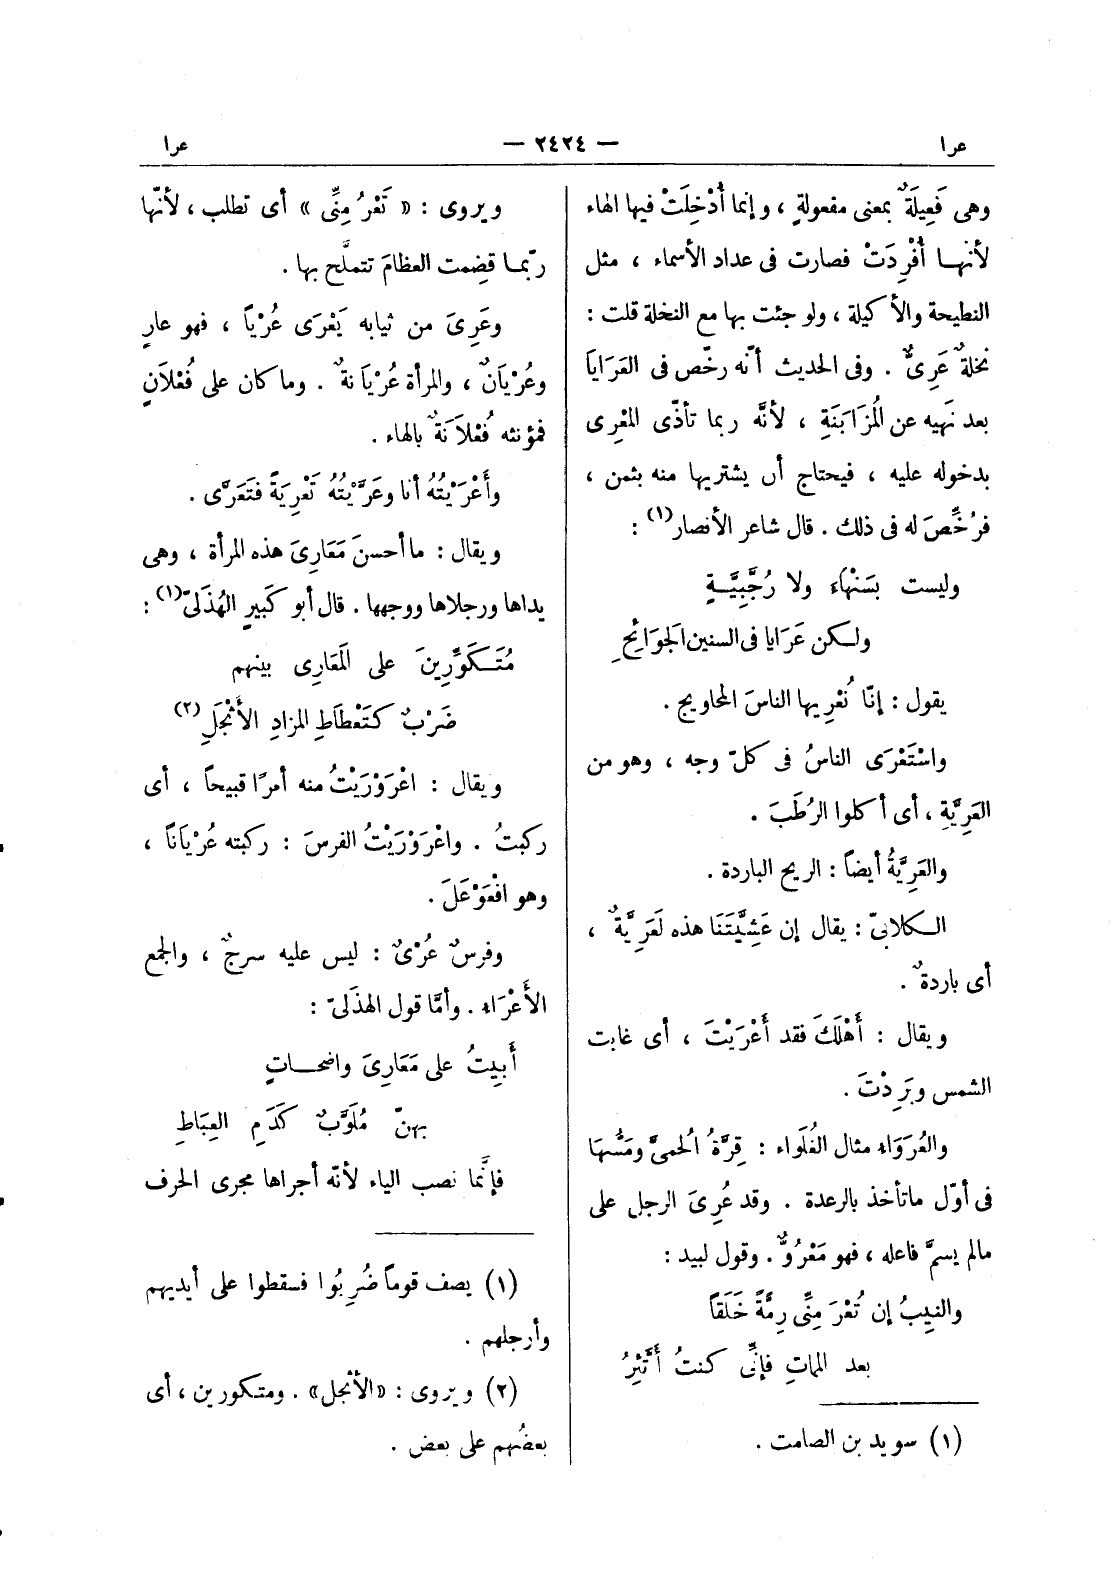 عرا — ٢٤٢٤ — عرا
وهى فَعِيلَةٌ بمعنى مفعولةٍ ، وإنما أُدْخِلَتْ فيها الهاء
لأنهـا أُفْرِدَتْ فصارت فى عداد الأسماء ، مثل
النطيحة والأكيلة ، ولو جئت بها مع النخلة قلت :
نخلةٌ عَرِىٌّ . وفى الحديث أنّه رخّص فى العَرَايَا
بعد نَهيه عن المُزَابَنَةِ ، لأنَّه ربما تأذّى المُعْرِى
بدخوله عليه ، فيحتاج أن يشتريها منه بثمن ،
فرُخِّصَ له فى ذلك . قال شاعر الأنصار(١) :
وليست بسَنْهَاءَ ولا رُجَّبِيَّـةٍ
ولـكن عَرَايا فى السنين الجَوَائِحِ
يقول : إنّا نُعْرِيها الناسَ المحاويج .
واسْتَعْرَى الناسُ فى كلّ وجه ، وهو من
العَرِيَّةِ ، أى أكلوا الرُطَبَ .
والعَرِيَّةُ أيضاً : الريح الباردة .
الـكلابىّ : يقال إن عَشِيَّتَنَا هذه لَعَرِيَّةٌ ،
أى باردةٌ .
ويقال : أَهْلَكَ فقد أَعْرَيْتَ ، أى غابت
الشمس وبَرِدْتَ .
والعُرَوَاء مثال الغُلَواء : قِرَّةُ الحمىَّ ومَسُّهَا
فى أوّل ماتأخذ بالرعدة . وقد عُرِىَ الرجل على
مالم يسمَّ فاعله ، فهو مَعْرُوٌّ . وقول لبيد :
والنيِبُ إن تُعْرَ مِنِّى رِمَّةً خَلَقاً
بعد المماتِ فإنِّى كنتُ أَتَّئِرُ
(١) سويد بن الصامت .
ويروى : « تَعْرُ مِنِّى » أى تطلب ، لأنّها
ربّمـا قضِمت العظامَ تتملَّح بها .
وعَرِىَ من ثيابه يَعْرَى عُرْياً ، فهو عارٍ
وعُرْيَانٌ ، والمرأة عُرْيَانةٌ . وما كان على فُعْلَانٍ
فمؤنثه فُعْلَانَةٌ بالهاء .
وأَعْرَيْتُهُ أنا وعَرَّيْتُهُ تَعْرِيَةً فتَعَرَّى .
ويقال : ما أحسنَ مَعَارِىَ هذه المرأة ، وهى
يداها ورجلاها ووجهها . قال أبو كَبيرٍ الهُذَلىّ(١) :
مُتَـكَوِّرِينَ على المَعَارِى بينهم
ضَرْبٌ كتَعْطَاطِ المزادِ الأَثْجَلِ(٢)
ويقال : اعْرَوْرَيْتُ منه أمرًا قبيحاً ، أى
ركبتُ . واعْرَوْرَيْتُ الفرسَ : ركبته عُرْيَاناً ،
وهو افْعَوْعَلَ .
وفرسٌ عُرْىٌ : ليس عليه سرجٌ ، والجمع
الأَعْرَاء . وأمَّا قول الهذَلىّ :
أَبِيتُ على مَعَارِىَ واضحـاتٍ
بهنّ مُلَوَّبٌ كَدَمِ العِبَاطِ
فإنَّما نصب الياء لأنّه أجراها مجرى الحرف
(١) يصف قوماً ضُرِبُوا فسقطوا على أيديهم
وأرجلهم .
(٢) ويروى : «الأنْجل» . ومتـكورين ، أى
بعضُهم على بعض .